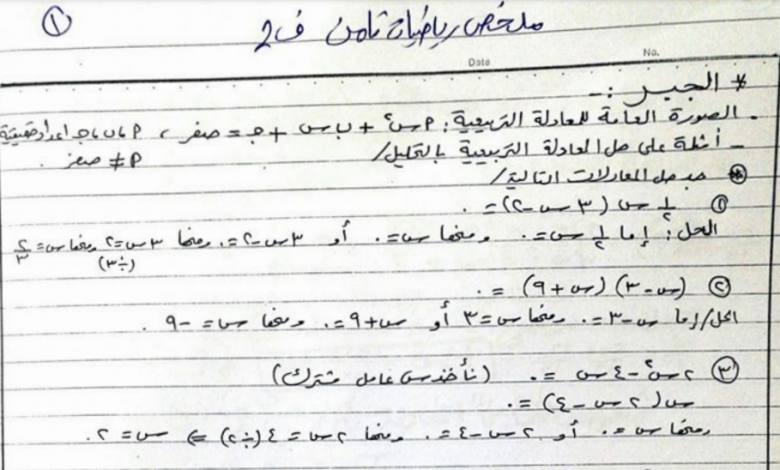 ①
ملخص رياضيات ثامن ف2
Date
No.
* الجبر :-
- الصورة العامة للمعادلة التربيعية: أس² + ب س + جـ = صفر ، أ، ب، جـ اعداد حقيقية
أ ≠ صفر .
- أمثلة على حل المعادلة التربيعية بالتحليل/
* جد حل المعادلات التالية/
① ½ س (٣ س - ٢) = ٠
الحل: إما ½ س = ٠ ومنها س = ٠ أو ٣س - ٢ = ٠ ومنها ٣س = ٢ ومنها س = ٢/٣
(÷٣)
② (س - ٣) (س + ٩) = ٠
الحل/ إما س - ٣ = ٠ ومنها س = ٣ أو س + ٩ = ٠ ومنها س = -٩ .
③ ٢س² - ٤س = ٠ (نأخذ س عامل مشترك)
س(٢س - ٤) = ٠
ومنها س = ٠ أو ٢س - ٤ = ٠ ومنها ٢س = ٤ (÷٢) => س = ٢.